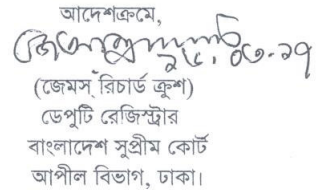 আদেশক্রমে,
২৮.০৩.১৭
(জেমস্ রিচার্ড ক্রুশ)
ডেপুটি রেজিস্ট্রার
বাংলাদেশ সুপ্রীম কোর্ট
আপীল বিভাগ, ঢাকা।